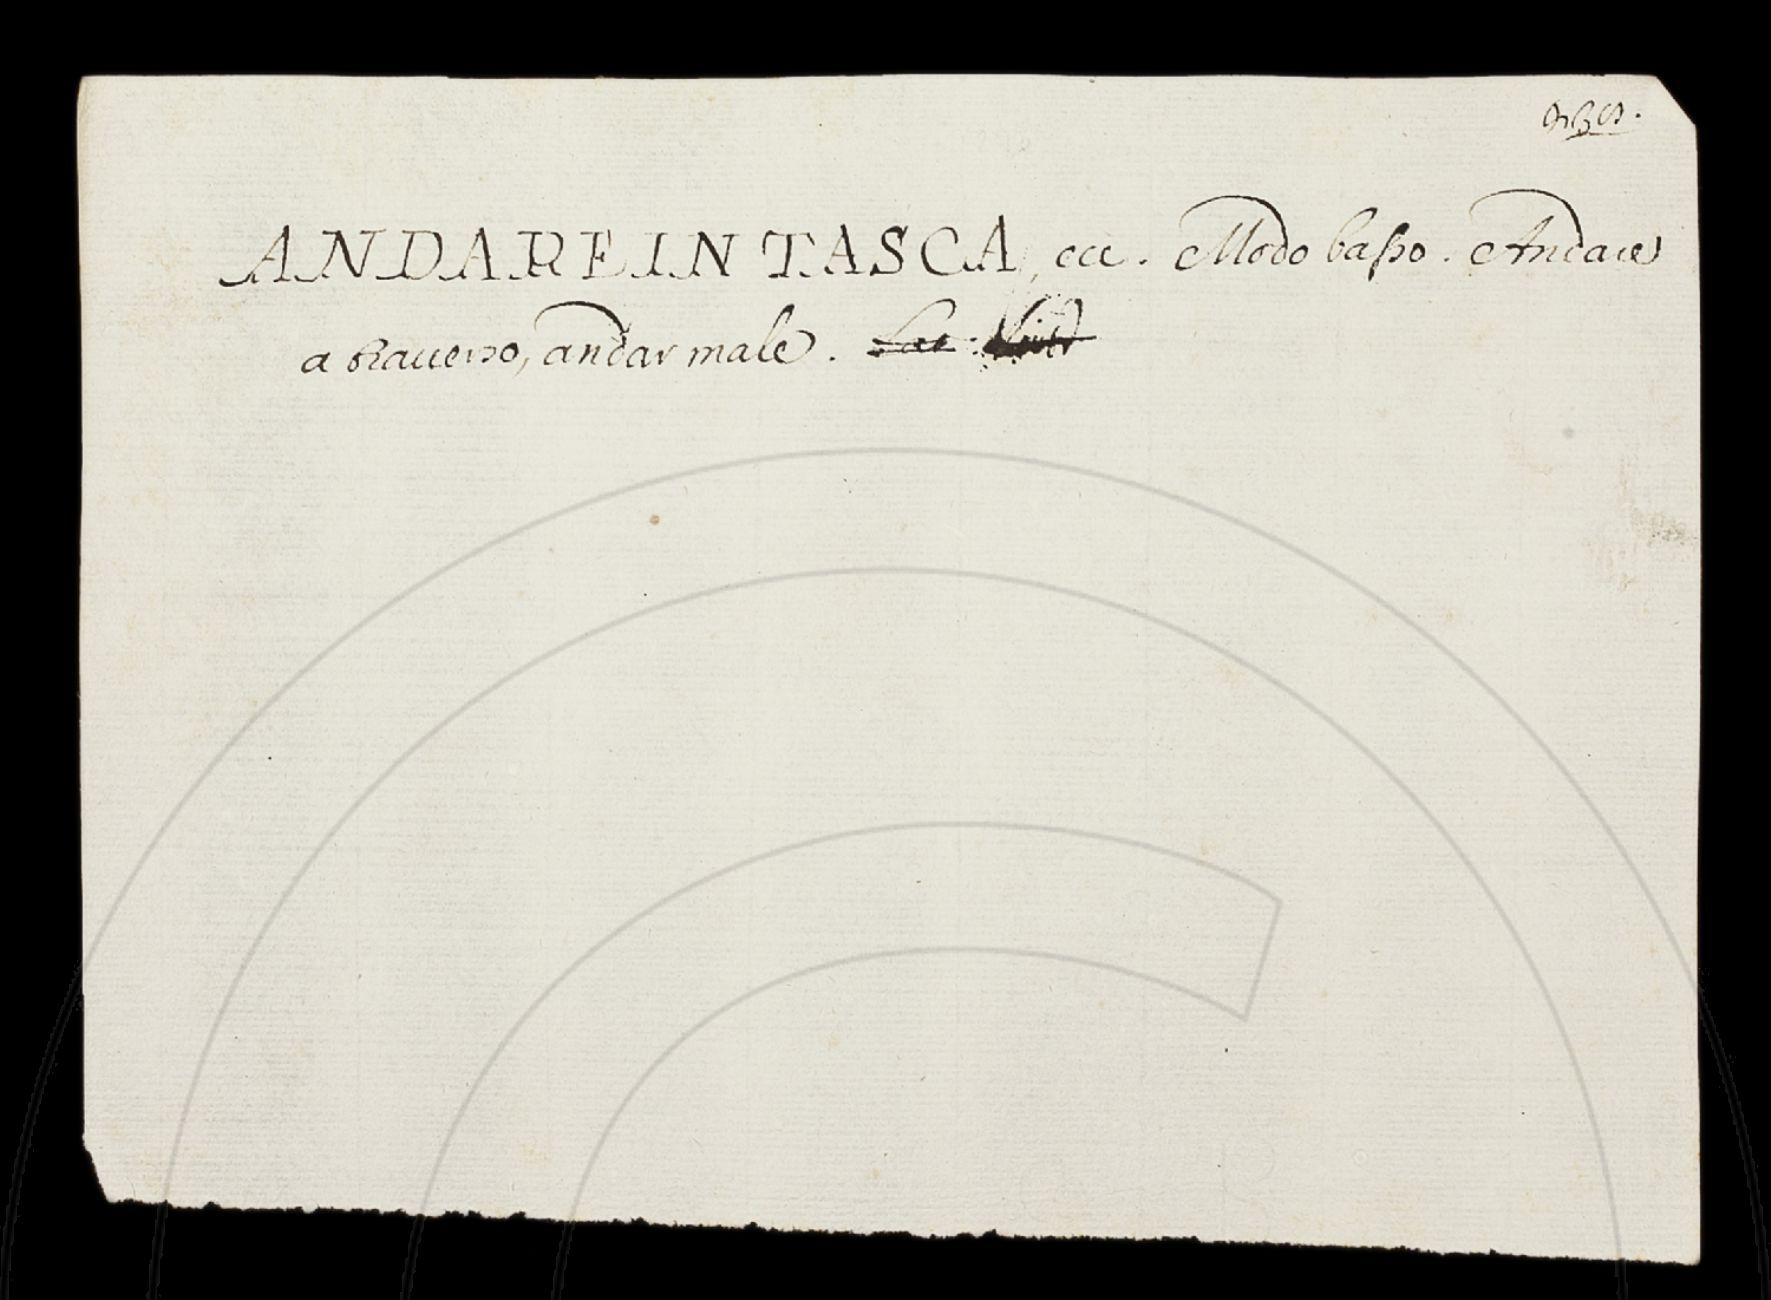 ANDARE IN TASCA, ecc. Modo basso. Andare
a traverso, andar male. Lat.